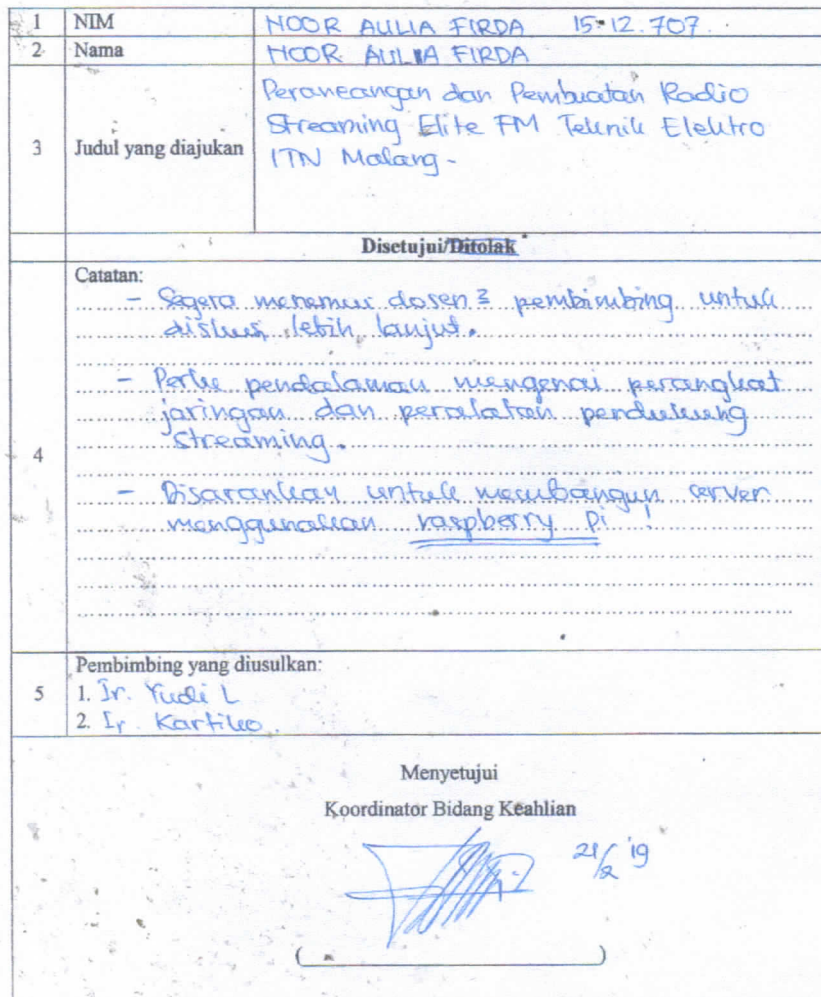 1 NIM NOOR AULIA FIRDA 15.12.707
2. Nama NOOR AULIA FIRDA
3 Judul yang diajukan
Perancangan dan Pembuatan Radio
Streaming Elite FM Teknik Elektro
ITN Malang -
Disetujui/Ditolak
4 Catatan:
- Segera menemui dosen2 pembimbing untuk
diskusi lebih lanjut.
- Perlu pendalaman mengenai perangkat
jaringan dan peralatan pendukung
streaming.
- Disarankan untuk membangun server
menggunakan raspberry pi !
5 Pembimbing yang diusulkan:
1. Ir. Yudi L
2. Ir. Kartiko
Menyetujui
Koordinator Bidang Keahlian
21/2 '19
( )